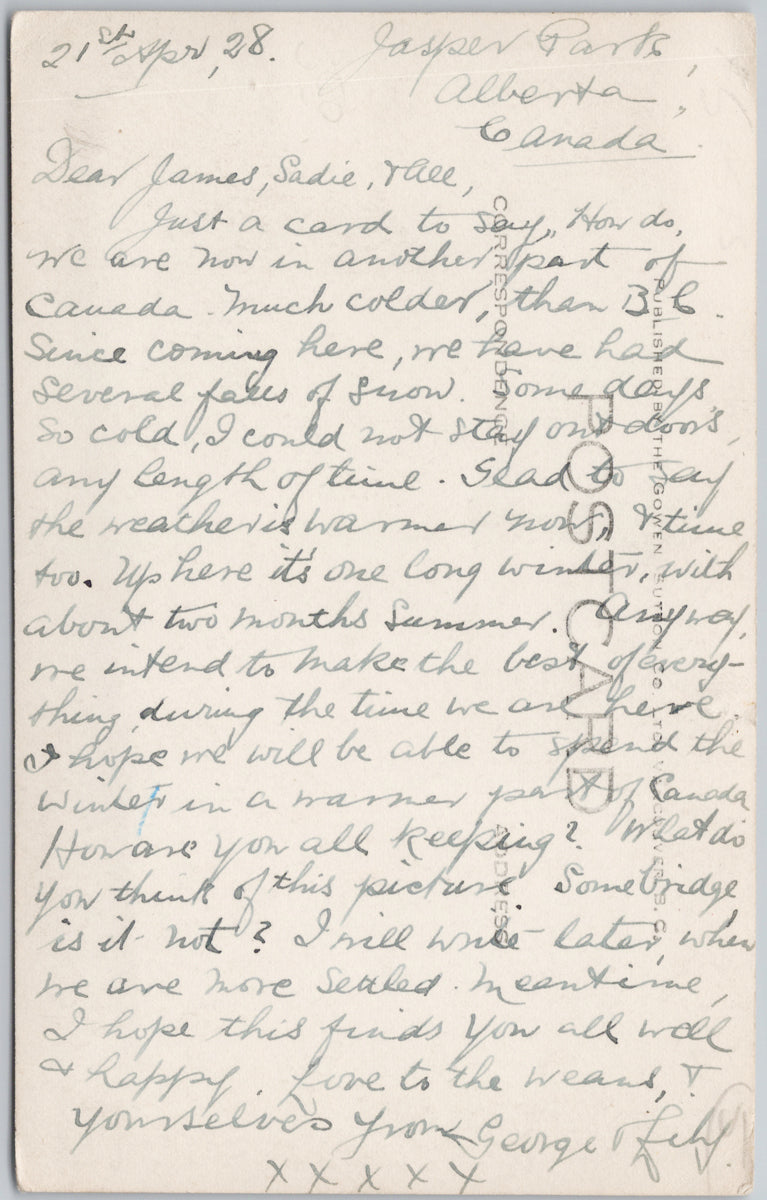 21st Apr, 28. Jasper Park,
Alberta,
Canada.
Dear James, Sadie, & All,
Just a card to say, How do,
we are now in another part of
Canada. Much colder, than B.C.
Since coming here, we have had
several falls of snow. Some days
so cold, I could not stay outdoors,
any length of time. Glad to say
the weather is warmer now, & time
too. Up here it's one long winter, with
about two months Summer. Anyway,
we intend to make the best of every-
thing, during the time we are here.
I hope we will be able to spend the
winter in a warmer part of Canada
How are you all keeping? What do
you think of this picture. Some bridge,
is it not? I will write later, when
we are more settled. Meantime,
I hope this finds you all well
& happy. Love to the weans, &
yourselves from George & Lily.
X X X X X
CORRESPONDENCE
ADDRESS
POST CARD
PUBLISHED BY THE GOWEN SUTTON CO. LTD. VANCOUVER B.C.